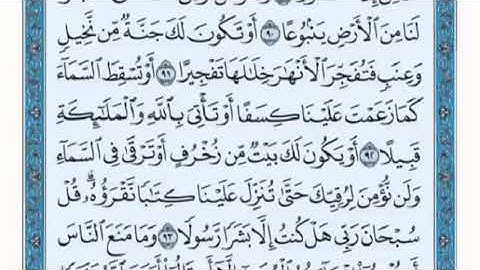 لَنَا مِنَ ٱلْأَرْضِ يَنۢبُوعًا ٩٠ أَوْ تَكُونَ لَكَ جَنَّةٌ مِّن نَّخِيلٍ
وَعِنَبٍ فَتُفَجِّرَ ٱلْأَنْهَٰرَ خِلَٰلَهَا تَفْجِيرًا ٩١ أَوْ تُسْقِطَ ٱلسَّمَآءَ
كَمَا زَعَمْتَ عَلَيْنَا كِسَفًا أَوْ تَأْتِىَ بِٱللَّهِ وَٱلْمَلَٰٓئِكَةِ
قَبِيلًا ٩٢ أَوْ يَكُونَ لَكَ بَيْتٌ مِّن زُخْرُفٍ أَوْ تَرْقَىٰ فِى ٱلسَّمَآءِ
وَلَن نُّؤْمِنَ لِرُقِيِّكَ حَتَّىٰ تُنَزِّلَ عَلَيْنَا كِتَٰبًا نَّقْرَؤُهُۥ ۗ قُلْ
سُبْحَانَ رَبِّى هَلْ كُنتُ إِلَّا بَشَرًا رَّسُولًا ٩٣ وَمَا مَنَعَ ٱلنَّاسَ